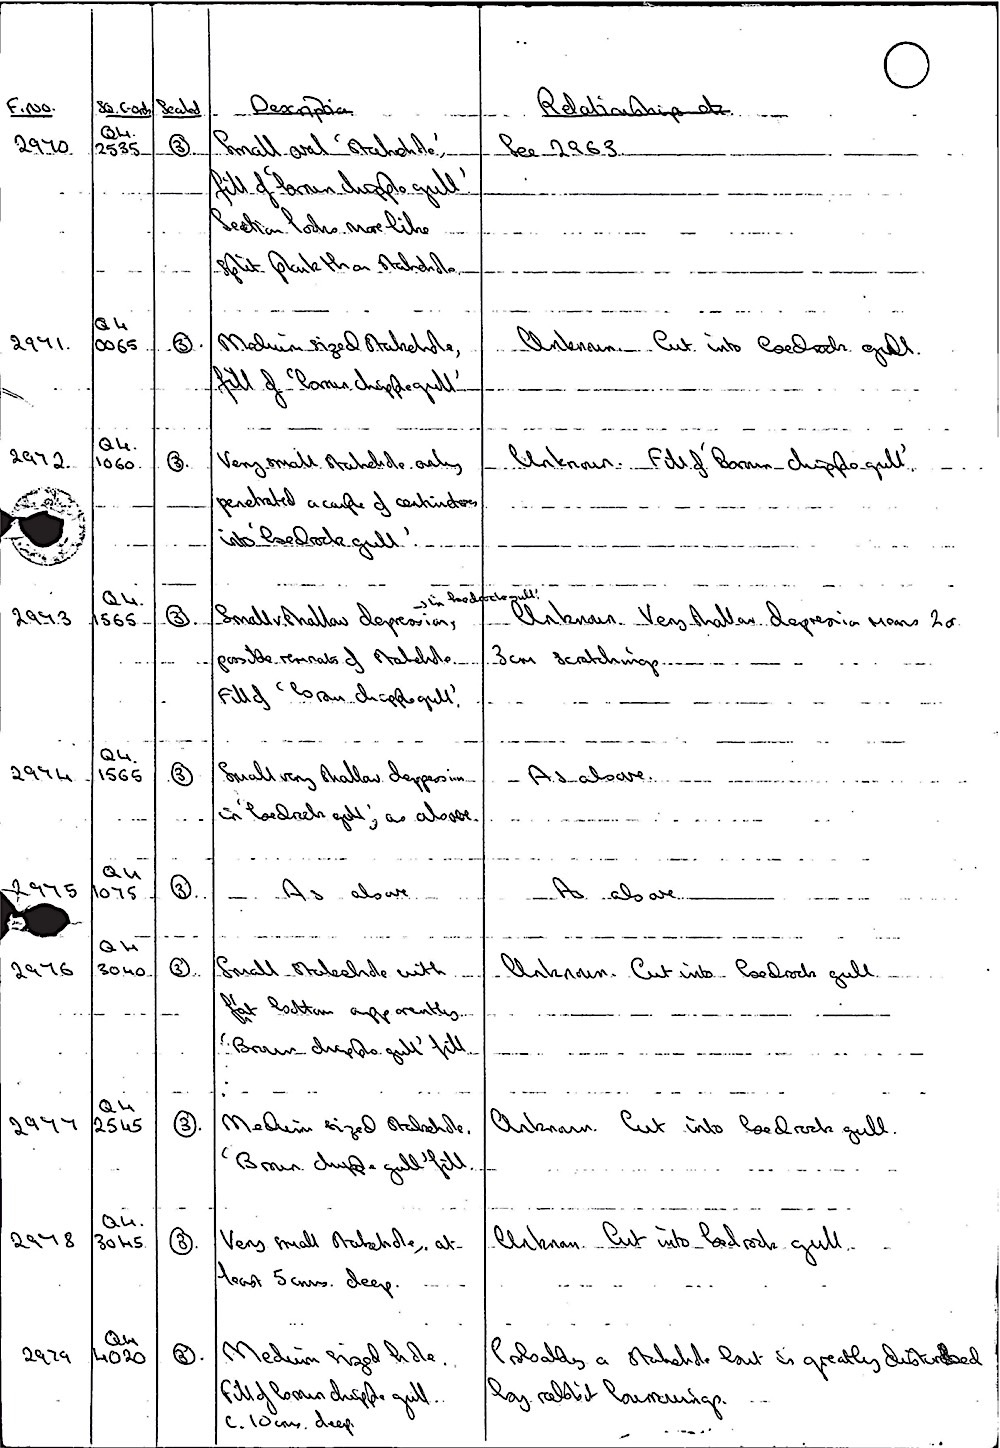 F.no. Sq. Cord Sealed Description Relationship etc
2970 Q4. 2535 ③ Small oval 'Stakehole', See 2963
fill of 'brown chipple gull'
Section looks more like
split plank than stakehole.
2971. Q4 0065 ③. Medium sized stakehole, Unknown. Cut into bedrock gull.
fill of 'brown chipple gull'
2972. Q4. 1060 ③. Very small stakehole only Unknown. Fill of 'Brown chipple gull'.
penetrated a couple of centimetres
into 'bedrock gull'.
in bedrock gull'
2973 Q4. 1565 ③. Small v. shallow depression, Unknown. Very shallow depression means 2 or
possible remnants of stakehole 3cm scratchings.
Fill of 'brown chipple gull'.
2974 Q4. 1565 ③ Small very shallow depression As above.
in 'bedrock gull', as above.
2975 Q4 1075 ③. As above As above
2976 Q4 3040 ③. Small stakehole with Unknown. Cut into bedrock gull
flat bottom apparently
'Brown chipple gull' fill
2977 Q4 2545 ③. Medium sized stakehole. Unknown. Cut into bedrock gull.
'Brown chipple gull' fill.
2978 Q4. 3045 ③. Very small stakehole, at Unknown. Cut into bedrock gull.
least 5cms. deep.
2979 Q4 4020 ③. Medium sized hole. Probably a stakehole but is greatly disturbed
Fill of brown chipple gull. by rabbit burrowings.
c. 10cms. deep.